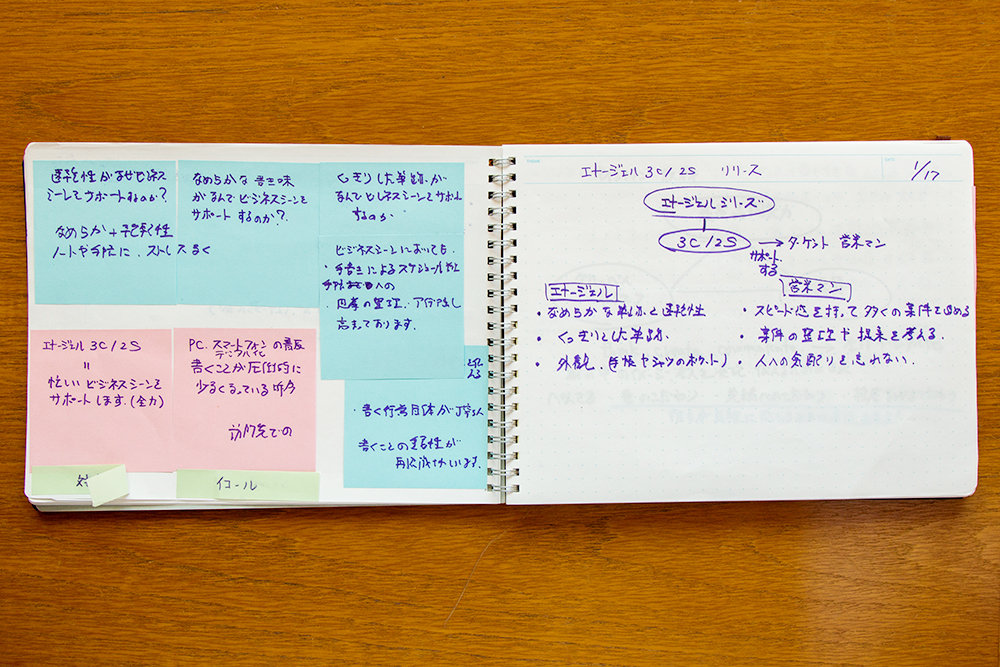 速乾性がなぜビジネス
シーンでサポートするのか?
なめらか + 速乾性
ノートや手帳に、ストレスなく
なめらかな書き味
がなんでビジネスシーンを
サポートするのか?
くっきりした筆跡が
なんでビジネスシーンをサポート
するのか
ビジネスシーンにおいても、
・手書きによるスケジュール
思考の整理、アイデア出し
忘れております。
・書く行為自体が
書くことの重要性が
エナージェル 3C/2S
=
忙しいビジネスシーンを
サポートします。(全力)
PC、スマートフォンの普及
デジタル化
書くことが圧倒的に
少なくなっている昨今
訪問先での
イコール
エナージェル 3C/2S リリース
1/17
エナージェルシリーズ
3C/2S → ターゲット 営業マン
サポート
する
エナージェル
・なめらかな筆跡と速乾性
・くっきりとした筆跡。
・外観。(手帳やシャツのポケット)
営業マン
・スピード感を持って多くの案件を進める
・案件の整理や提案を考える。
・人への気配りを忘れない。